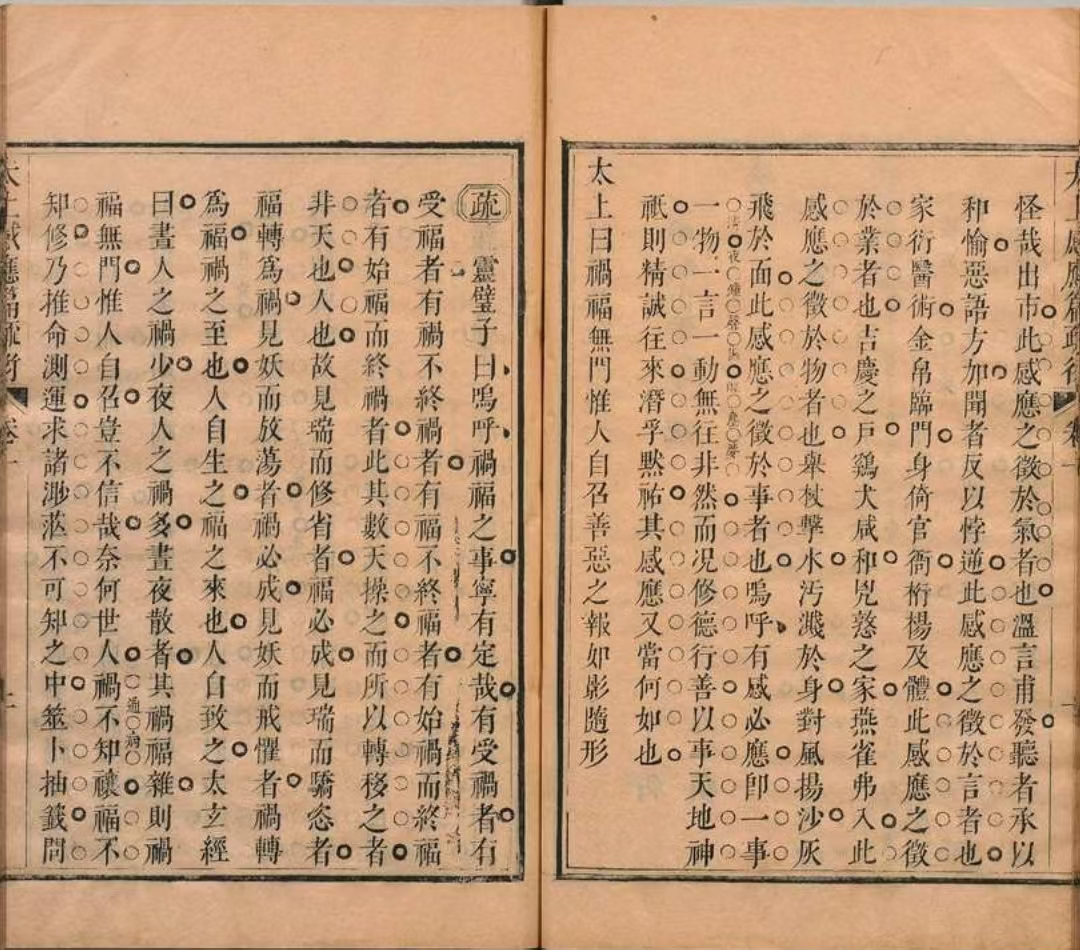 怪哉出市此感應之徵於氣者也溫言甫發聽者承以
和愉惡語方加聞者反以悖逆此感應之徵於言者也
家衍醫術金帛臨門身倚官衙桁楊及體此感應之徵
於業者也吉慶之戶鷄犬咸和兇慝之家燕雀弗入此
感應之徵於物者也舉杖擊水汚濺於身對風揚沙灰
飛於面此感應之徵於事者也嗚呼有感必應卽一事
一物一言一動無往非然而况修德行善以事天地神
祇則精誠往來潛孚黙祐其感應又當何如也
太上曰禍福無門惟人自召善惡之報如影隨形
太上感應篇疏衍 卷一
疏 靈璧子曰嗚呼禍福之事寧有定哉有受禍者有
受福者有禍不終禍者有福不終福者有始禍而終福
者有始福而終禍者此其數天操之而所以轉移之者
非天也人也故見瑞而修省者福必成見瑞而驕恣者
福轉爲禍見妖而放蕩者禍必成見妖而戒懼者禍轉
爲福禍之至也人自生之福之來也人自致之太玄經
曰晝人之禍少夜人之禍多晝夜散者其禍福雜則禍
福無門惟人自召豈不信哉奈何世人禍不知禳福不
通病
知修乃推命測運求諸渺茫不可知之中筮卜抽籤問
太上感應篇疏衍 卷一